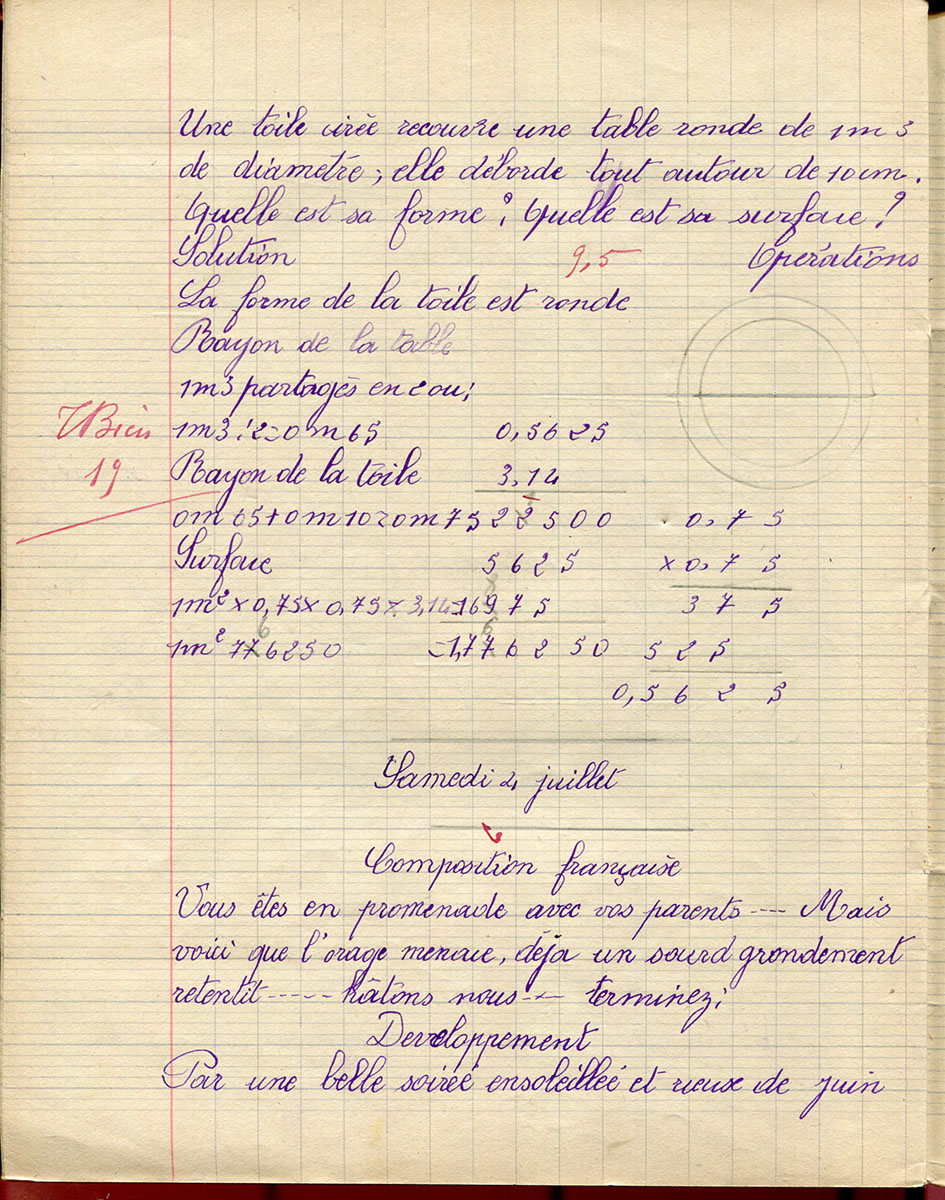 Une toile cirée recouvre une table ronde de 1m3
de diamètre ; elle déborde tout autour de 10cm.
Quelle est sa forme ? Quelle est sa surface ?
Solution 9,5 Opérations
La forme de la toile est ronde
Rayon de la table
1m3 partagés en 2 ou ;
TBien 1m3 : 2 = 0m65 0,5625
19 Rayon de la toile 3,14
0m65 + 0m10 = 0m75 22500 0,75
Surface 5625 x 0,75
1m² x 0,75 x 0,75 x 3,14 = 16975 375
1m² 776250 = 1,776250 525
0,5625
Samedi 4 juillet
Composition française
Vous êtes en promenade avec vos parents ---- Mais
voici que l'orage menace, déja un sourd grondement
retentit ----- hâtons nous --- terminez ;
Developpement
Par une belle soireé ensoleilleé et de juin